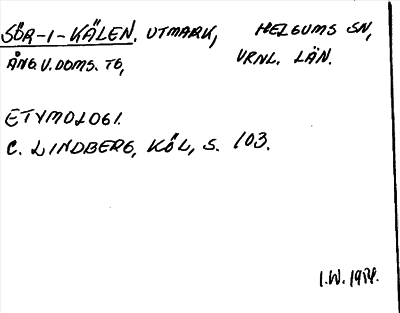 SÖR-I-KÄLEN. UTMARK, HELGUMS SN,
ÅNG. V. DOMS. TG, VRNL. LÄN.
ETYMOLOGI.
C. LINDBERG, KÖL, S. 103.
I.W. 1984.